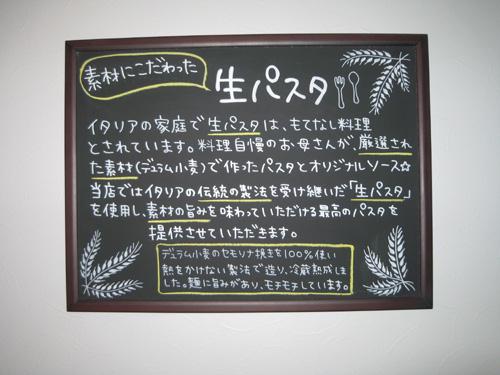 素材にこだわった
生パスタ
イタリアの家庭で生パスタは、もてなし料理
とされています。料理自慢のお母さんが、厳選され
た素材(デュラム小麦)で作ったパスタとオリジナルソース☆
当店ではイタリアの伝統の製法を受け継いだ「生パスタ」
を使用し、素材の旨みを味わっていただける最高のパスタを
提供させていただきます。
デュラム小麦のセモリナ挽きを100%使い
熱をかけない製法で造り、冷蔵熟成しま
した。麺に旨みがあり、モチモチしています。